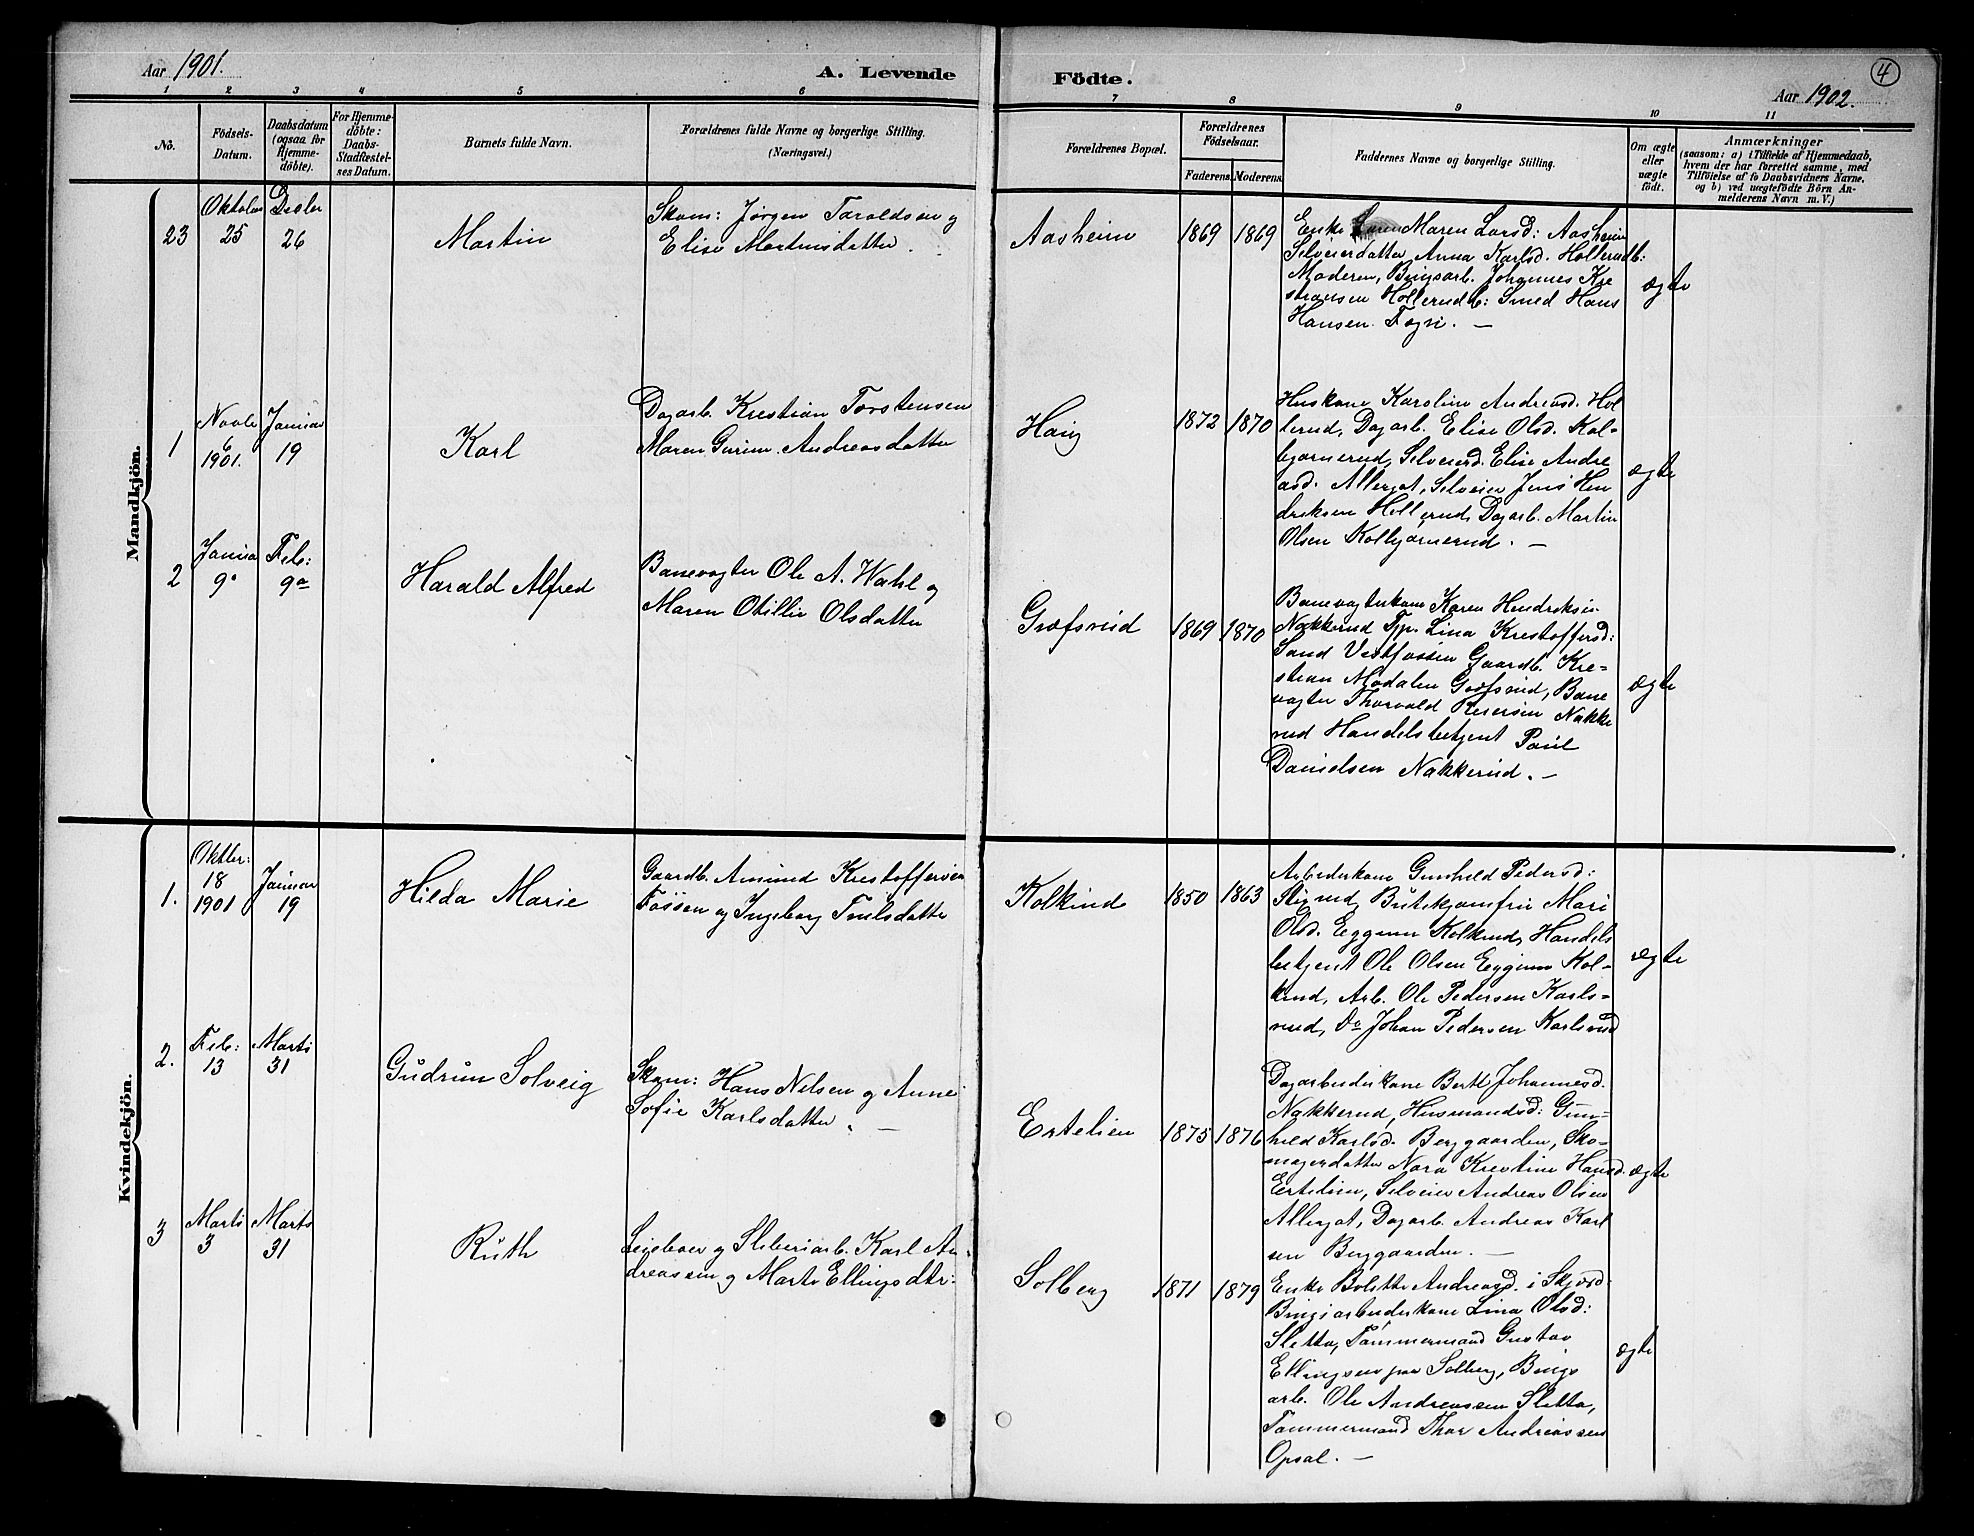 Aar 1901.
A. Levende Födte.
4
Aar 1902.
1 2 3 4 5 6 7 8 9 10 11
No.
Födsels-Datum.
Daabsdatum (ogsaa for Hjemme-döbte).
For Hjemme-döbte: Daabs-Stadfæstel-ses Datum.
Barnets fulde Navn.
Forældrenes fulde Navne og borgerlige Stilling.
(Næringsvei.)
Forældrenes Bopæl.
Forældrenes Födselsaar.
Faderens. Moderens.
Faddernes Navne og borgerlige Stilling.
Om ægte eller uægte födt.
Anmærkninger
(saasom: a) i Tilfælde af Hjemmedaab,
hvem der har forrettet samme, med
Tilföielse af to Daabsvidners Navne,
og b) ved uægtefödte Börn An-
melderens Navn m. V.)
Mandkjön.
23
Oktober 25
Decbr 26
Martin
Skom: Jörgen Taraldsen og
Elise Martinsdatter.
Aasheim
1869 1869
Enke Maren Larsd: Aasheim
Selveierdatter Anna Karlsd. Hollerudb:
Moderen, Brugsarb. Johannes Kre
stiansen Hollerudb: Smed Hans
Hansen Fagri. —
ægte
1
Novbr 6 1901.
Januar 19
Karl
Dagarb. Krestian Torstensen
Maren Gurine Andreasdatter
Haug
1872 1870
Huskone Karoline Andreasd. Hol
lerud, Dagarb. Elise Olsd. Kol-
bjørnerud, Selveierd. Elise Andre
asd. Allergot, Selveier Jens Hen
driksen Hollerud, Dagarb. Martin
Olsen Kolbjørnerud. —
ægte
2
Januar 9
Feb: 9
Harald Alfred
Banevogter Ole A. Wahl og
Maren Otillie Olsdatter
Græfsrud
1869 1870
Banevogterkone Karen Hendriksen
Nakkerud Tjp. Lina Krestoffersd:
Sand Vestfossen Gaardb. Kre-
stian Modalen Græfsrud, Bane
vogter Thorvald Reiersen Nakke
rud Handelsbetjent Paul
Danielsen Nakkerud. —
ægte
Kvindekjön.
1.
Oktbr: 18 1901
Januar 19
Hilda Marie
Gaardb. Amund Krestoffersen
Fossen og Ingeborg Truelsdatter
Kolkind
1850 1863
Arbeiderkone Gunhild Pedersd:
Stigrud, Butikjomfru Mari
Olsd. Eggum Kolkind, Handels
betjent Ole Olsen Eggum Kol-
kind, Arb. Ole Pedersen Karls-
rud, Do Johan Pedersen Karlsrud
ægte
2.
Feb: 13
Marts 31
Gudrun Solveig
Skom: Hans Nilsen og Anne
Sofie Karlsdatter. —
Ertelien
1875 1876
Dagarbeiderkone Berte Johannesd.
Nakkerud, Husmandsd: Gun-
hild Karlsd. Berggaarden, Sko-
magerdatter Nora Krestine Hansd.
Ertelien, Selveier Andreas Olsen
Allergot, Dagarb. Andreas Karl
sen Berggaarden. —
ægte
3
Marts 3
Marts 31
Ruth
Leieboer og Sliberiarb. Karl An-
dreassen og Marte Ellingsdtr:
Solberg
1871 1879
Enke Bolette Andreasd. i Skjærd:
Brugsarbeiderkone Lina Olsd:
Sletta, Tømmermand Gustav
Ellingsen paa Solberg, Brugs
arb. Ole Andreassen Sletta,
Tømmermand Thor Andreassen
Opsal. —
ægte